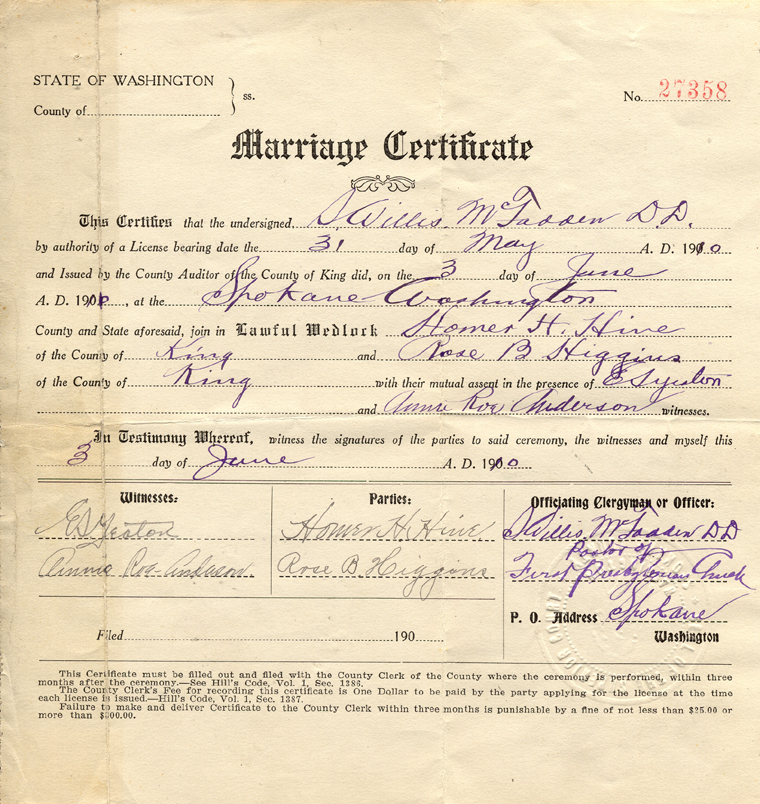 STATE OF WASHINGTON
County of ss.
No. 27358
Marriage Certificate
This Certifies that the undersigned, S. Willis McFadden D.D.
by authority of a License bearing date the 31 day of May A. D. 1910
and Issued by the County Auditor of the County of King did, on the 3 day of June
A. D. 1910, at the Spokane Washington
County and State aforesaid, join in Lawful Wedlock Homer H. Hine
of the County of King and Rose B Higgins
of the County of King with their mutual assent in the presence of E S Yeston
and Annie Roe Anderson witnesses.
In Testimony Whereof, witness the signatures of the parties to said ceremony, the witnesses and myself this
3 day of June A. D. 1910
Witnesses:
E S Yeston
Annie Roe Anderson
Parties:
Homer H. Hine
Rose B Higgins
Officiating Clergyman or Officer:
S Willis McFadden D D
Pastor of
First Presbyterian Church
P. O. Address Spokane
Washington
Filed 190
This Certificate must be filled out and filed with the County Clerk of the County where the ceremony is performed, within three
months after the ceremony.—See Hill's Code, Vol. 1, Sec. 1386.
The County Clerk's Fee for recording this certificate is One Dollar to be paid by the party applying for the license at the time
each license is issued.—Hill's Code, Vol. 1, Sec. 1387.
Failure to make and deliver Certificate to the County Clerk within three months is punishable by a fine of not less than $25.00 or
more than $300.00.